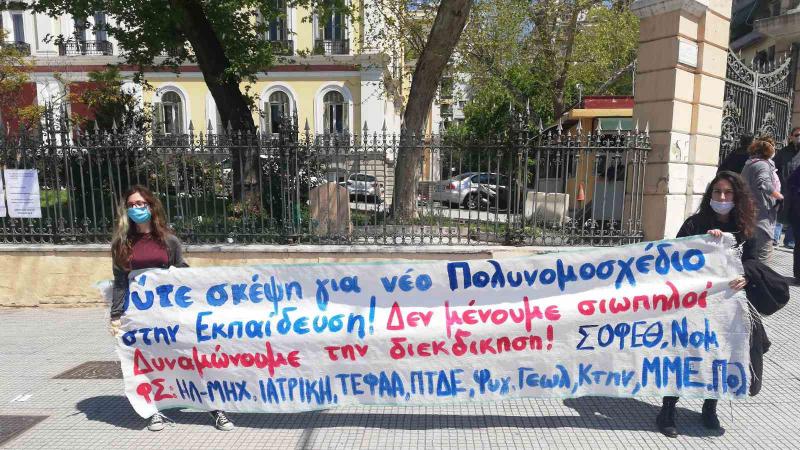 Ούτε σκέψη για νέο Πολυνομοσχέδιο
στην Εκπαίδευση! Δεν μένουμε σιωπηλοί
Δυναμώνουμε την διεκδίκηση! ΣΟΦΕΘ, Νομ
ΦΣ: ΗΛ-ΜΗΧ, ΙΑΤΡΙΚΗ, ΤΕΦΑΑ, ΠΤΔΕ, Ψυχ, Γεωλ, Κτην, ΜΜΕ, Πολ